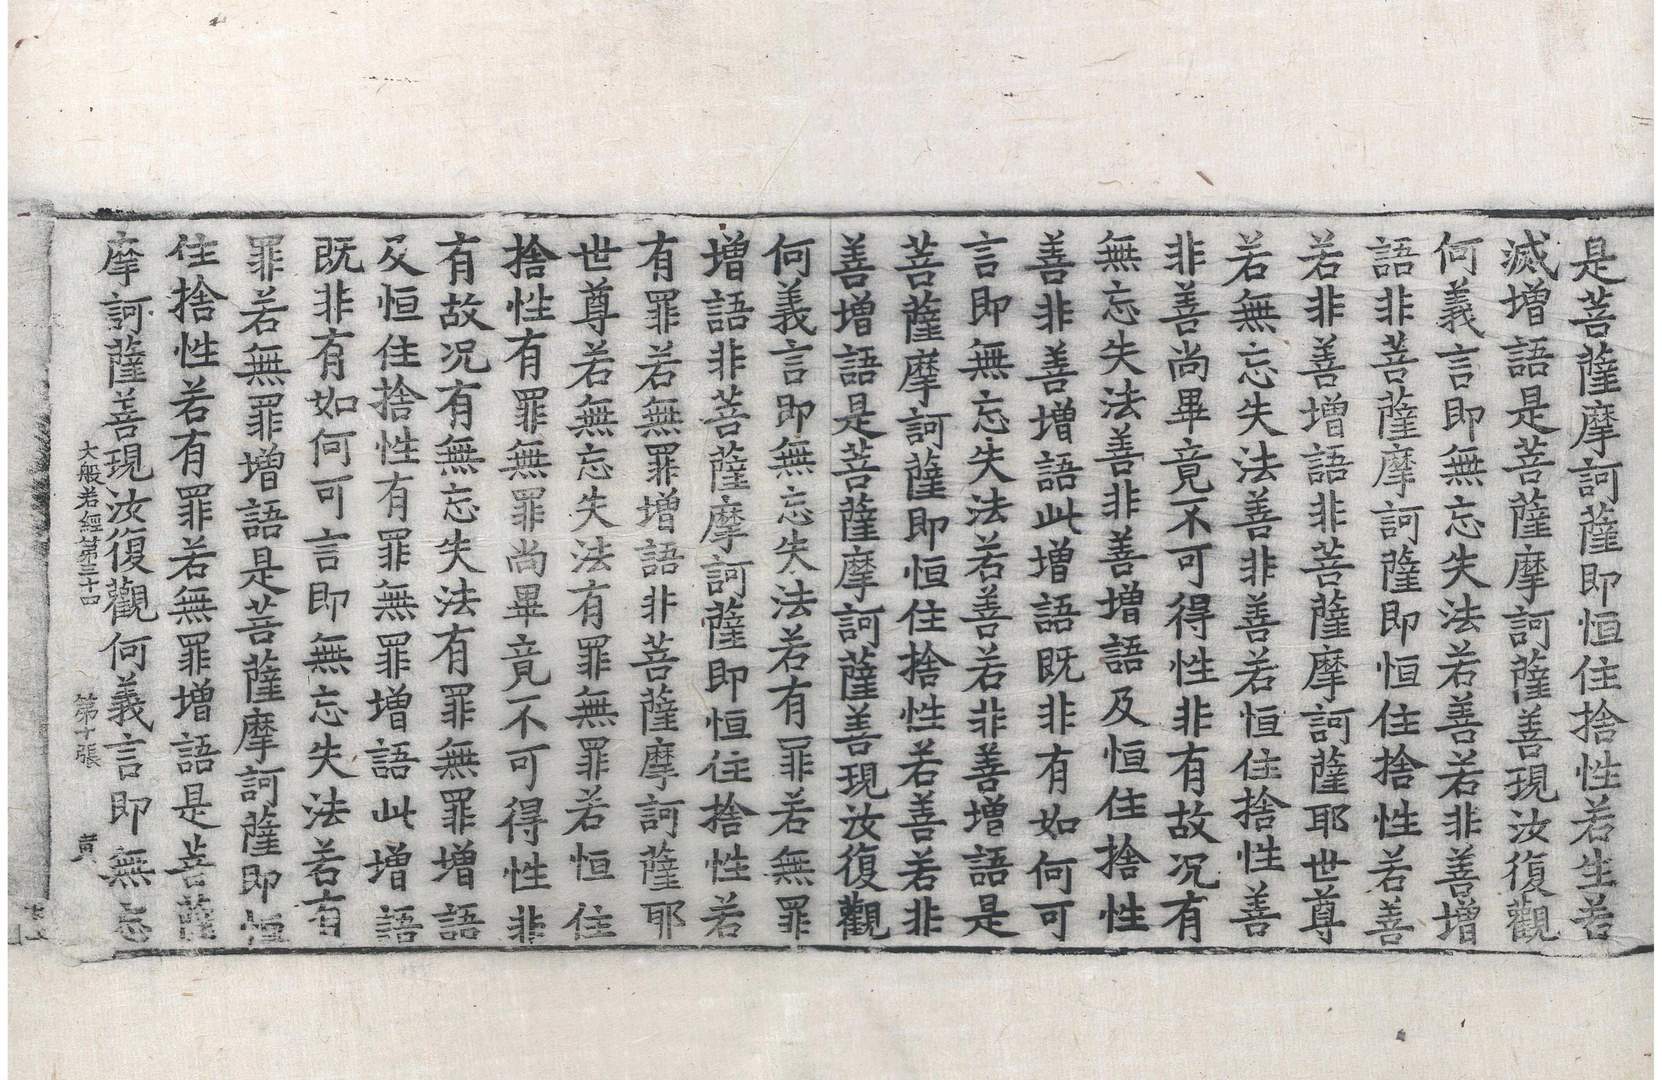 是菩薩摩訶薩即恒住捨性若生若
滅增語是菩薩摩訶薩善現汝復觀
何義言即無忘失法若善若非善增
語非菩薩摩訶薩即恒住捨性若善
若非善增語非菩薩摩訶薩耶世尊
若無忘失法善非善若恒住捨性善
非善尚畢竟不可得性非有故况有
無忘失法善非善增語及恒住捨性
善非善增語此增語既非有如何可
言即無忘失法若善若非善增語是
菩薩摩訶薩即恒住捨性若善若非
善增語是菩薩摩訶薩善現汝復觀
何義言即無忘失法若有罪若無罪
增語非菩薩摩訶薩即恒住捨性若
有罪若無罪增語非菩薩摩訶薩耶
世尊若無忘失法有罪無罪若恒住
捨性有罪無罪尚畢竟不可得性非
有故况有無忘失法有罪無罪增語
及恒住捨性有罪無罪增語此增語
既非有如何可言即無忘失法若有
罪若無罪增語是菩薩摩訶薩即恒
住捨性若有罪若無罪增語是菩薩
摩訶薩善現汝復觀何義言即無忘
大般若經第三十四 第十張 黄